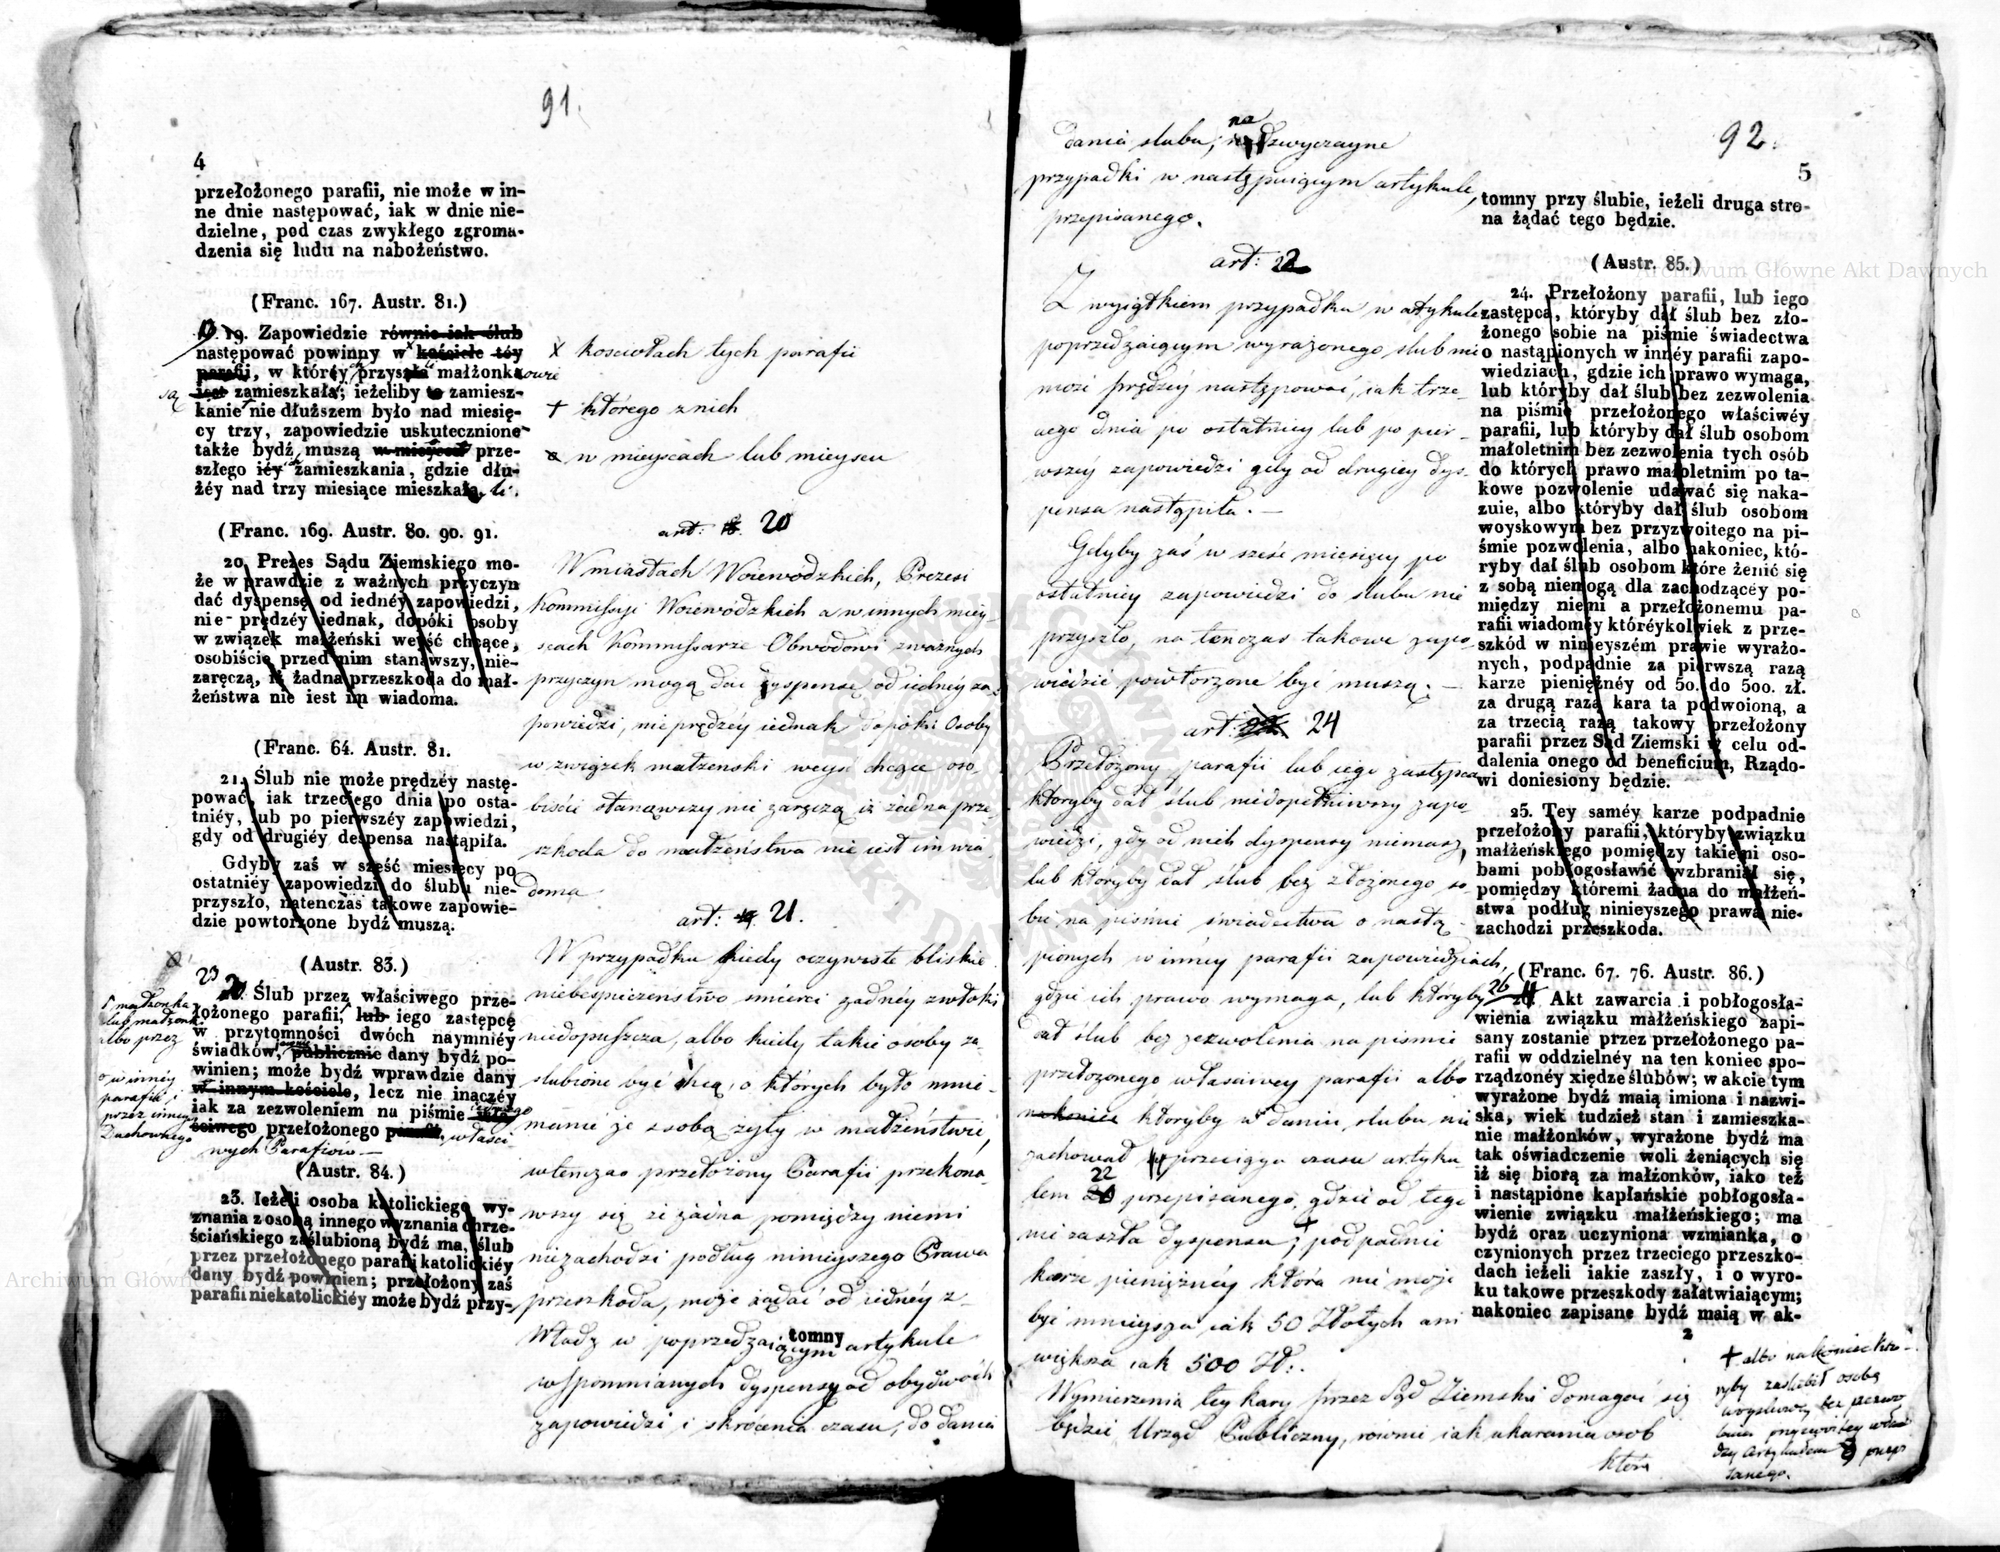 91.
4
przełożonego parafii, nie może w in-
ne dnie następować, iak w dnie nie-
dzielne, pod czas zwykłego zgroma-
dzenia się ludu na nabożeństwo.
(Franc. 167. Austr. 81.)
19. Zapowiedzie równie iak ślub
następować powinny w kościele téy
parafii, w któréy przyszła małżonka
iest zamieszkała; ieżeliby to zamiesz-
kanie nie dłuższem było nad miesię-
cy trzy, zapowiedzie uskutecznione
także bydź muszą w mieyscu prze-
szłego iéy zamieszkania, gdzie dłu-
żéy nad trzy miesiące mieszkała.
są
X kościołach tych parafii
+ którego z nich
w mieyscach lub mieyscu
(Franc. 169. Austr. 80. 90. 91.
20. Prezes Sądu Ziemskiego mo-
że w prawdzie z ważnych przyczyn
dać dyspensę od iednéy zapowiedzi,
nie prędzéy iednak, dopóki osoby
w związek małżeński weyść chcące,
osobiście przed nim stanąwszy, nie-
zaręczą, iż żadna przeszkoda do mał-
żeństwa nie iest im wiadoma.
(Franc. 64. Austr. 81.
21. Ślub nie może prędzéy nastę-
pować, iak trzeciego dnia po osta-
tniéy, lub po pierwszéy zapowiedzi,
gdy od drugiéy despensa nastąpiła.
Gdyby zaś w sześć miesięcy po
ostatniéy zapowiedzi do ślubu nie-
przyszło, natenczas takowe zapowie-
dzie powtórzone bydź muszą.
(Austr. 83.)
23
Ślub przez właściwego prze-
łożonego parafii, lub iego zastępcę
w przytomności dwóch naymniéy
świadków, publicznie dany bydź po-
winien; może bydź wprawdzie dany
w innym kościele, lecz nie inaczéy
iak za zezwoleniem na piśmie wła-
ściwego przełożonego parafii, właści
wych Parafiów
małżonka
lub małżonk
albo przez
w innéy
parafii i
przez innego
Duchownego
(Austr. 84.)
23. Ieżeli osoba katolickiego wy-
znania z osobą innego wyznania chrze-
ściańskiego zaślubioną bydź ma, ślub
przez przełożonego parafii katolickiéy
dany bydź powinien; przełożony zaś
parafii niekatolickiéy może bydź przy-
art: 20
W miastach Woiewodzkich, Prezesi
Kommissyi Woiewodzkich a w innych miey-
scach Kommissarze Obwodowi z ważnych
przyczyn mogą dać dyspensę od iednéy za-
powiedzi, nie prędzéy iednak dopóki Osoby
w związek małżenski weyść chcące oso-
biście stanąwszy nie zaręczą iż żadna prze-
szkoda do małżeństwa nie iest im wia-
doma
art: 21.
W przypadku kiedy oczywiste bliskie
niebespieczenstwo smierci żadnéy zwłoki
niedopuszcza, albo kiedy takie osoby za-
slubione być chcą, o których było mnie-
manie że z sobą żyły w małżeństwie,
wtenczas przełożony Parafii przekona-
wszy się że żadna pomiędzy niemi
niezachodzi podług ninieyszego Prawa
przeszkoda, może żądać od iednéy z
Władz w poprzedzaiącym artykule
tomny
wspomnianych dyspensy od obydwóch
zapowiedzi i skrócenia czasu, do dania
92.
5
dania slubu, na
dzwyczayne
przypadki w następuiącym artykule,
przepisanego.
art: 22
Z wyiątkiem przypadku w artykule
poprzedzaiącym wyrażonego slub nie
może prędzéy następować, iak trze-
ciego dnia po ostatniey lub po pier-
wszéy zapowiedzi gdy od drugiey dys-
pensa nastąpiła. —
Gdyby zaś w sześć miesięcy po
ostatniey zapowiedzi do slubu nie
przyszło, na tenczas takowe zapo-
wiedzie powtórzone być muszą. —
art: 24
Przełożony parafii lub iego zastępca
któryby dał ślub niedopełniwszy zapo-
wiedzi, gdy od nich dyspensy niemasz,
lub któryby dał slub bez złożonego so-
bie na piśmie świadectwa o nastą-
pionych w innéy parafii zapowiedziach,
gdzie ich prawo wymaga, lub któryby
dał ślub bez zezwolenia na piśmie
przełożonego właściwey parafii albo
nakoniec któryby w daniu slubu nie
zachował przeciągu czasu artyku-
22
łem przepisanego, gdzie od tego
nie zaszła dyspensa; + podpadnie
karze pieniężnéy która nie może
być mnieysza iak 50 Złotych ani
większa iak 500 Zł:.
Wymierzenia tey kary przez Sąd Ziemski domagać się
będzie Urząd Publiczny, równie iak ukarania osób
które
tomny przy ślubie, ieżeli druga stro-
na żądać tego będzie.
(Austr. 85.)
24. Przełożony parafii, lub iego
zastępca, któryby dał ślub bez zło-
żonego sobie na piśmie świadectwa
o nastąpionych w innéy parafii zapo-
wiedziach, gdzie ich prawo wymaga,
lub któryby dał ślub bez zezwolenia
na piśmie przełożonego właściwéy
parafii, lub któryby dał ślub osobom
małoletnim bez zezwolenia tych osób
do których prawo małoletnim po ta-
kowe pozwolenie udawać się naka-
zuie, albo któryby dał ślub osobom
woyskowym bez przyzwoitego na pi-
śmie pozwolenia, albo nakoniec, któ-
ryby dał ślub osobom które żenić się
z sobą niemogą dla zachodzącéy po-
między niemi a przełożonemu pa-
rafii wiadoméy któréykolwiek z prze-
szkód w ninieyszém prawie wyrażo-
nych, podpadnie za pierwszą razą
karze pieniężnéy od 50. do 500. zł.
za drugą razą kara ta podwoioną, a
za trzecią razą takowy przełożony
parafii przez Sąd Ziemski w celu od-
dalenia onego od beneficium, Rządo-
wi doniesiony będzie.
25. Tey saméy karze podpadnie
przełożony parafii, któryby związku
małżeńskiego pomiędzy takiemi oso-
bami pobłogosławić wzbraniał się,
pomiędzy któremi żadna do małżeń-
stwa podług ninieyszego prawa nie-
zachodzi przeszkoda.
(Franc. 67. 76. Austr. 86.)
26
Akt zawarcia i pobłogosła-
wienia związku małżeńskiego zapi-
sany zostanie przez przełożonego pa-
rafii w oddzielnéy na ten koniec spo-
rządzonéy xiędze ślubów; w akcie tym
wyrażone bydź maią imiona i nazwi-
ska, wiek tudzież stan i zamieszka-
nie małżonków, wyrażone bydź ma
tak oświadczenie woli żeniących się
iż się biorą za małżonków, iako też
i nastąpione kapłańskie pobłogosła-
wienie związku małżeńskiego; ma
bydź oraz uczyniona wzmianka, o
czynionych przez trzeciego przeszko-
dach ieżeli iakie zaszły, i o wyro-
ku takowe przeszkody załatwiaiącym;
nakoniec zapisane bydź maią w ak-
2
+ albo nakoniec któ-
ryby zaslubił osobę
woyskową bez pozwo
lenia przyzwoitey wła
dzy Artykułem 9 przepi
sanego.
Archiwum Główne Akt Dawnych